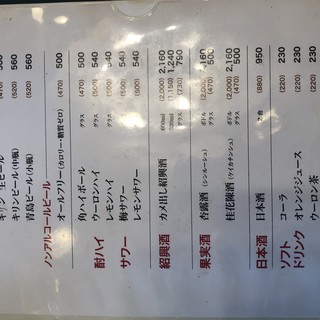 キリン 生ビール (470) 500
キリンビール(中瓶) (520) 560
青島ビール(小瓶) (520) 560
ノンアルコールビール
オールフリー(カロリー・糖質ゼロ) (470) 500
酎ハイ
角ハイボール グラス (470) 500
ウーロンハイ グラス (500) 540
レモンハイ グラス (500) 540
サワー
梅サワー (500) 540
レモンサワー (500) 540
紹興酒
カメ出し紹興酒 600ml (2,000) 2,160
(1,150) 1,240
(730) 790
果実酒
杏露酒(シンルーシュ) ボトル (2,000) 2,160
グラス (470) 500
桂花陳酒(ケイカチンシュ) ボトル (2,000) 2,160
グラス (470) 500
日本酒
日本酒 (880) 950
ソフト
ドリンク
コーラ (220) 230
オレンジジュース (220) 230
ウーロン茶 (220) 230